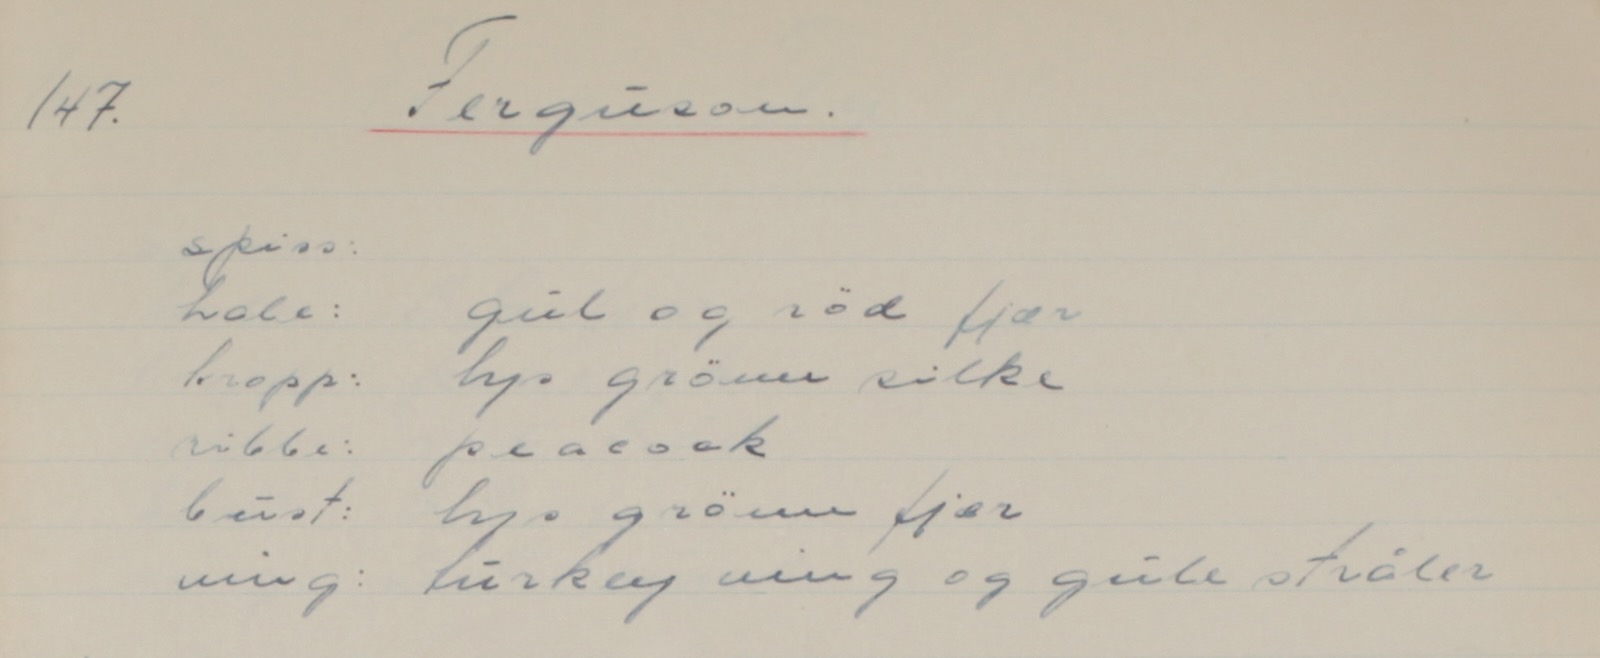 147. Ferguson.
spiss:
hale: gul og röd fjær
kropp: lys grönn silke
ribbe: peacock
bust: lys grönn fjær
ving: turkey ving og gule stråler